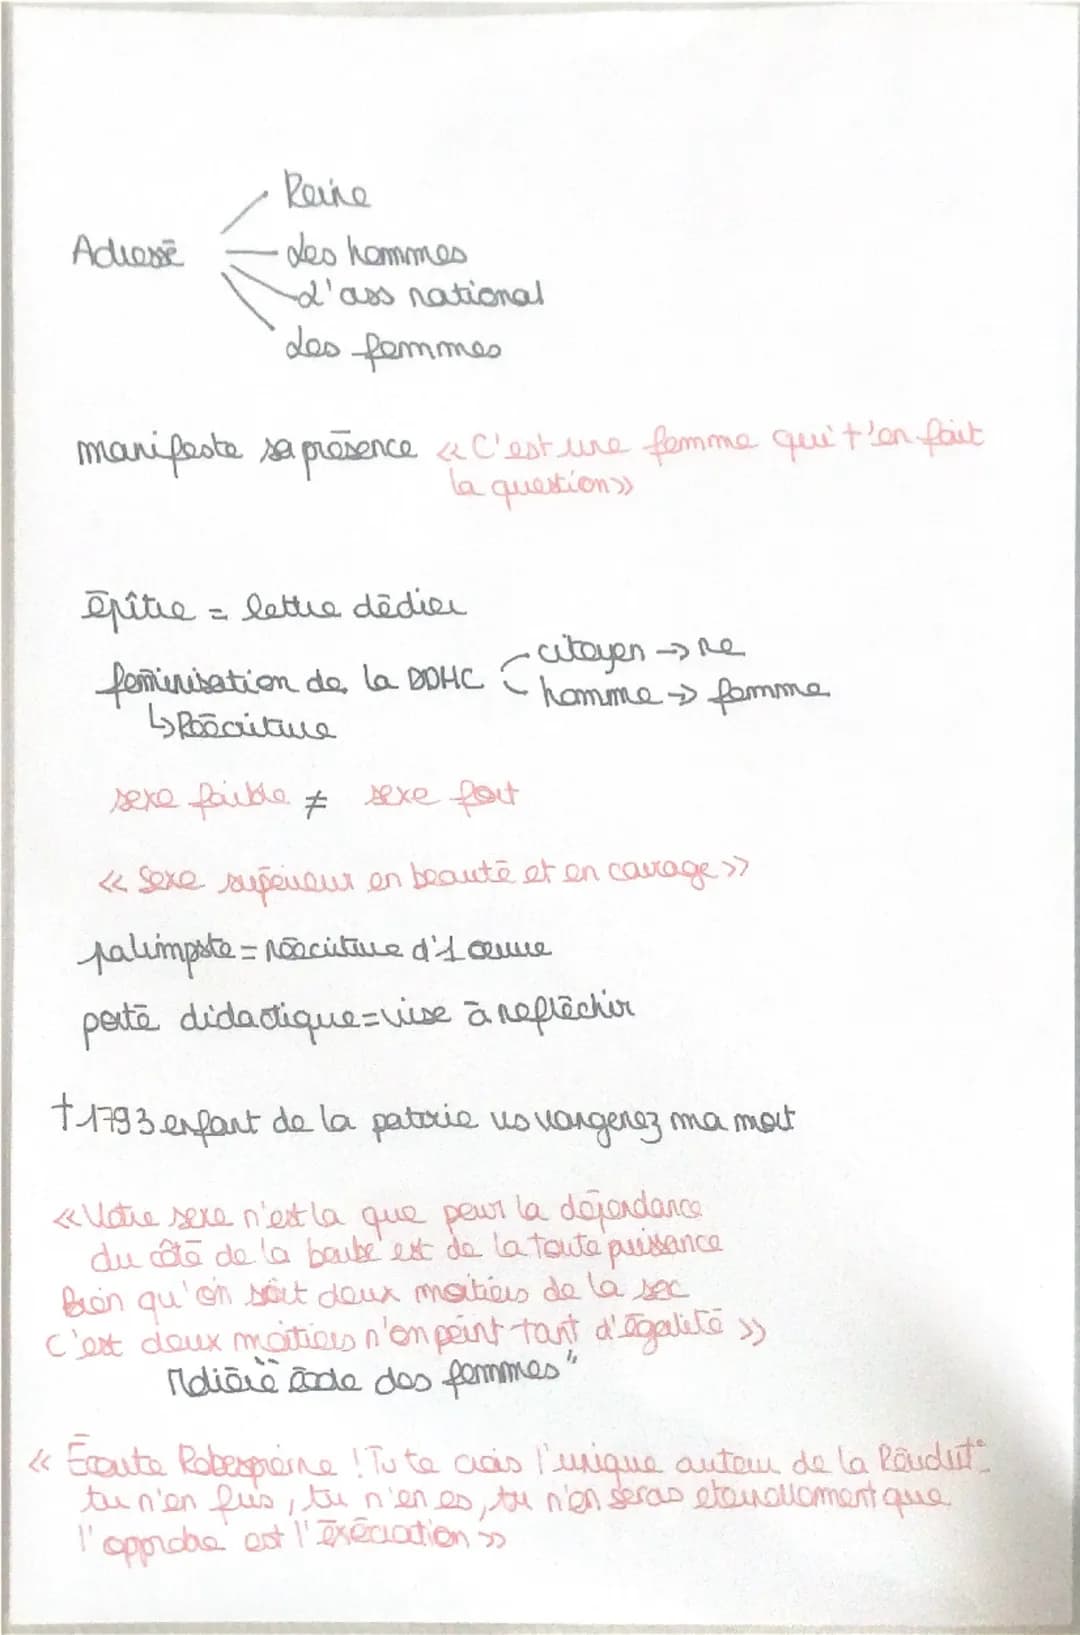 Reine
Adressé
des hommes
d'ass national
des femmes
manifeste sa présence « C'est une femme qui t'en fait
la question»
épître = lettre dédier
citoyen → ne
féminisation de la DDHC
homme → femme
↳ Réécriture
sexe faible ≠ sexe fort
« Sexe supérieur en beauté et en courage »
palimpste = réécriture d'1 œuvre
porté didactique = vise à réfléchir
† 1793 enfant de la patrie vs vengerez ma mort
« Votre sexe n'est la que pour la dépendance
du côté de la barbe est de la toute puissance
bien qu'on soit deux moitiés de la soc
c'est deux moitiés n'on point tant d'égalité »
Molière "école des femmes"
« Écoute Robespierre ! Tu te crois l'unique auteur de la Révolut°
tu n'en fus, tu n'en es, tu n'en seras éternellement que
l'opprobe est l'exécration »